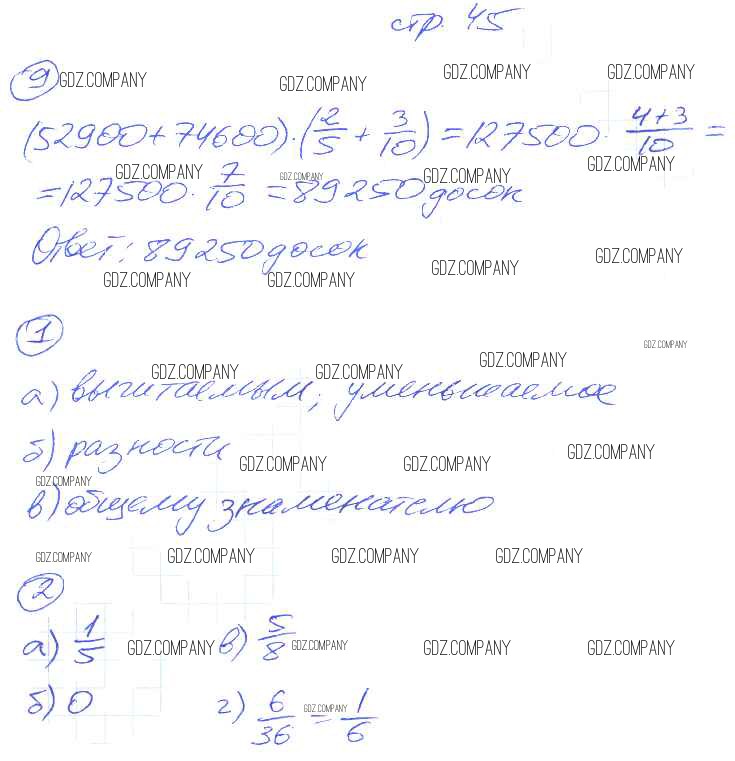 стр. 45
9 GDZ.COMPANY GDZ.COMPANY GDZ.COMPANY GDZ.COMPANY
(52900+74600)·(2/5 + 3/10) = 127500 · (4+3)/10 =
GDZ.COMPANY GDZ.COMPANY GDZ.COMPANY GDZ.COMPANY
=127500 · 7/10 = 89250 досок
Ответ: 89250 досок
GDZ.COMPANY GDZ.COMPANY GDZ.COMPANY GDZ.COMPANY
1 GDZ.COMPANY
GDZ.COMPANY GDZ.COMPANY GDZ.COMPANY
а) вычитаемым; уменьшаемое
б) разности
GDZ.COMPANY GDZ.COMPANY GDZ.COMPANY GDZ.COMPANY
в) общему знаменателю
GDZ.COMPANY GDZ.COMPANY GDZ.COMPANY GDZ.COMPANY
2
а) 1/5 GDZ.COMPANY в) 5/8 GDZ.COMPANY GDZ.COMPANY GDZ.COMPANY
б) 0 г) 6/36 = 1/6 GDZ.COMPANY